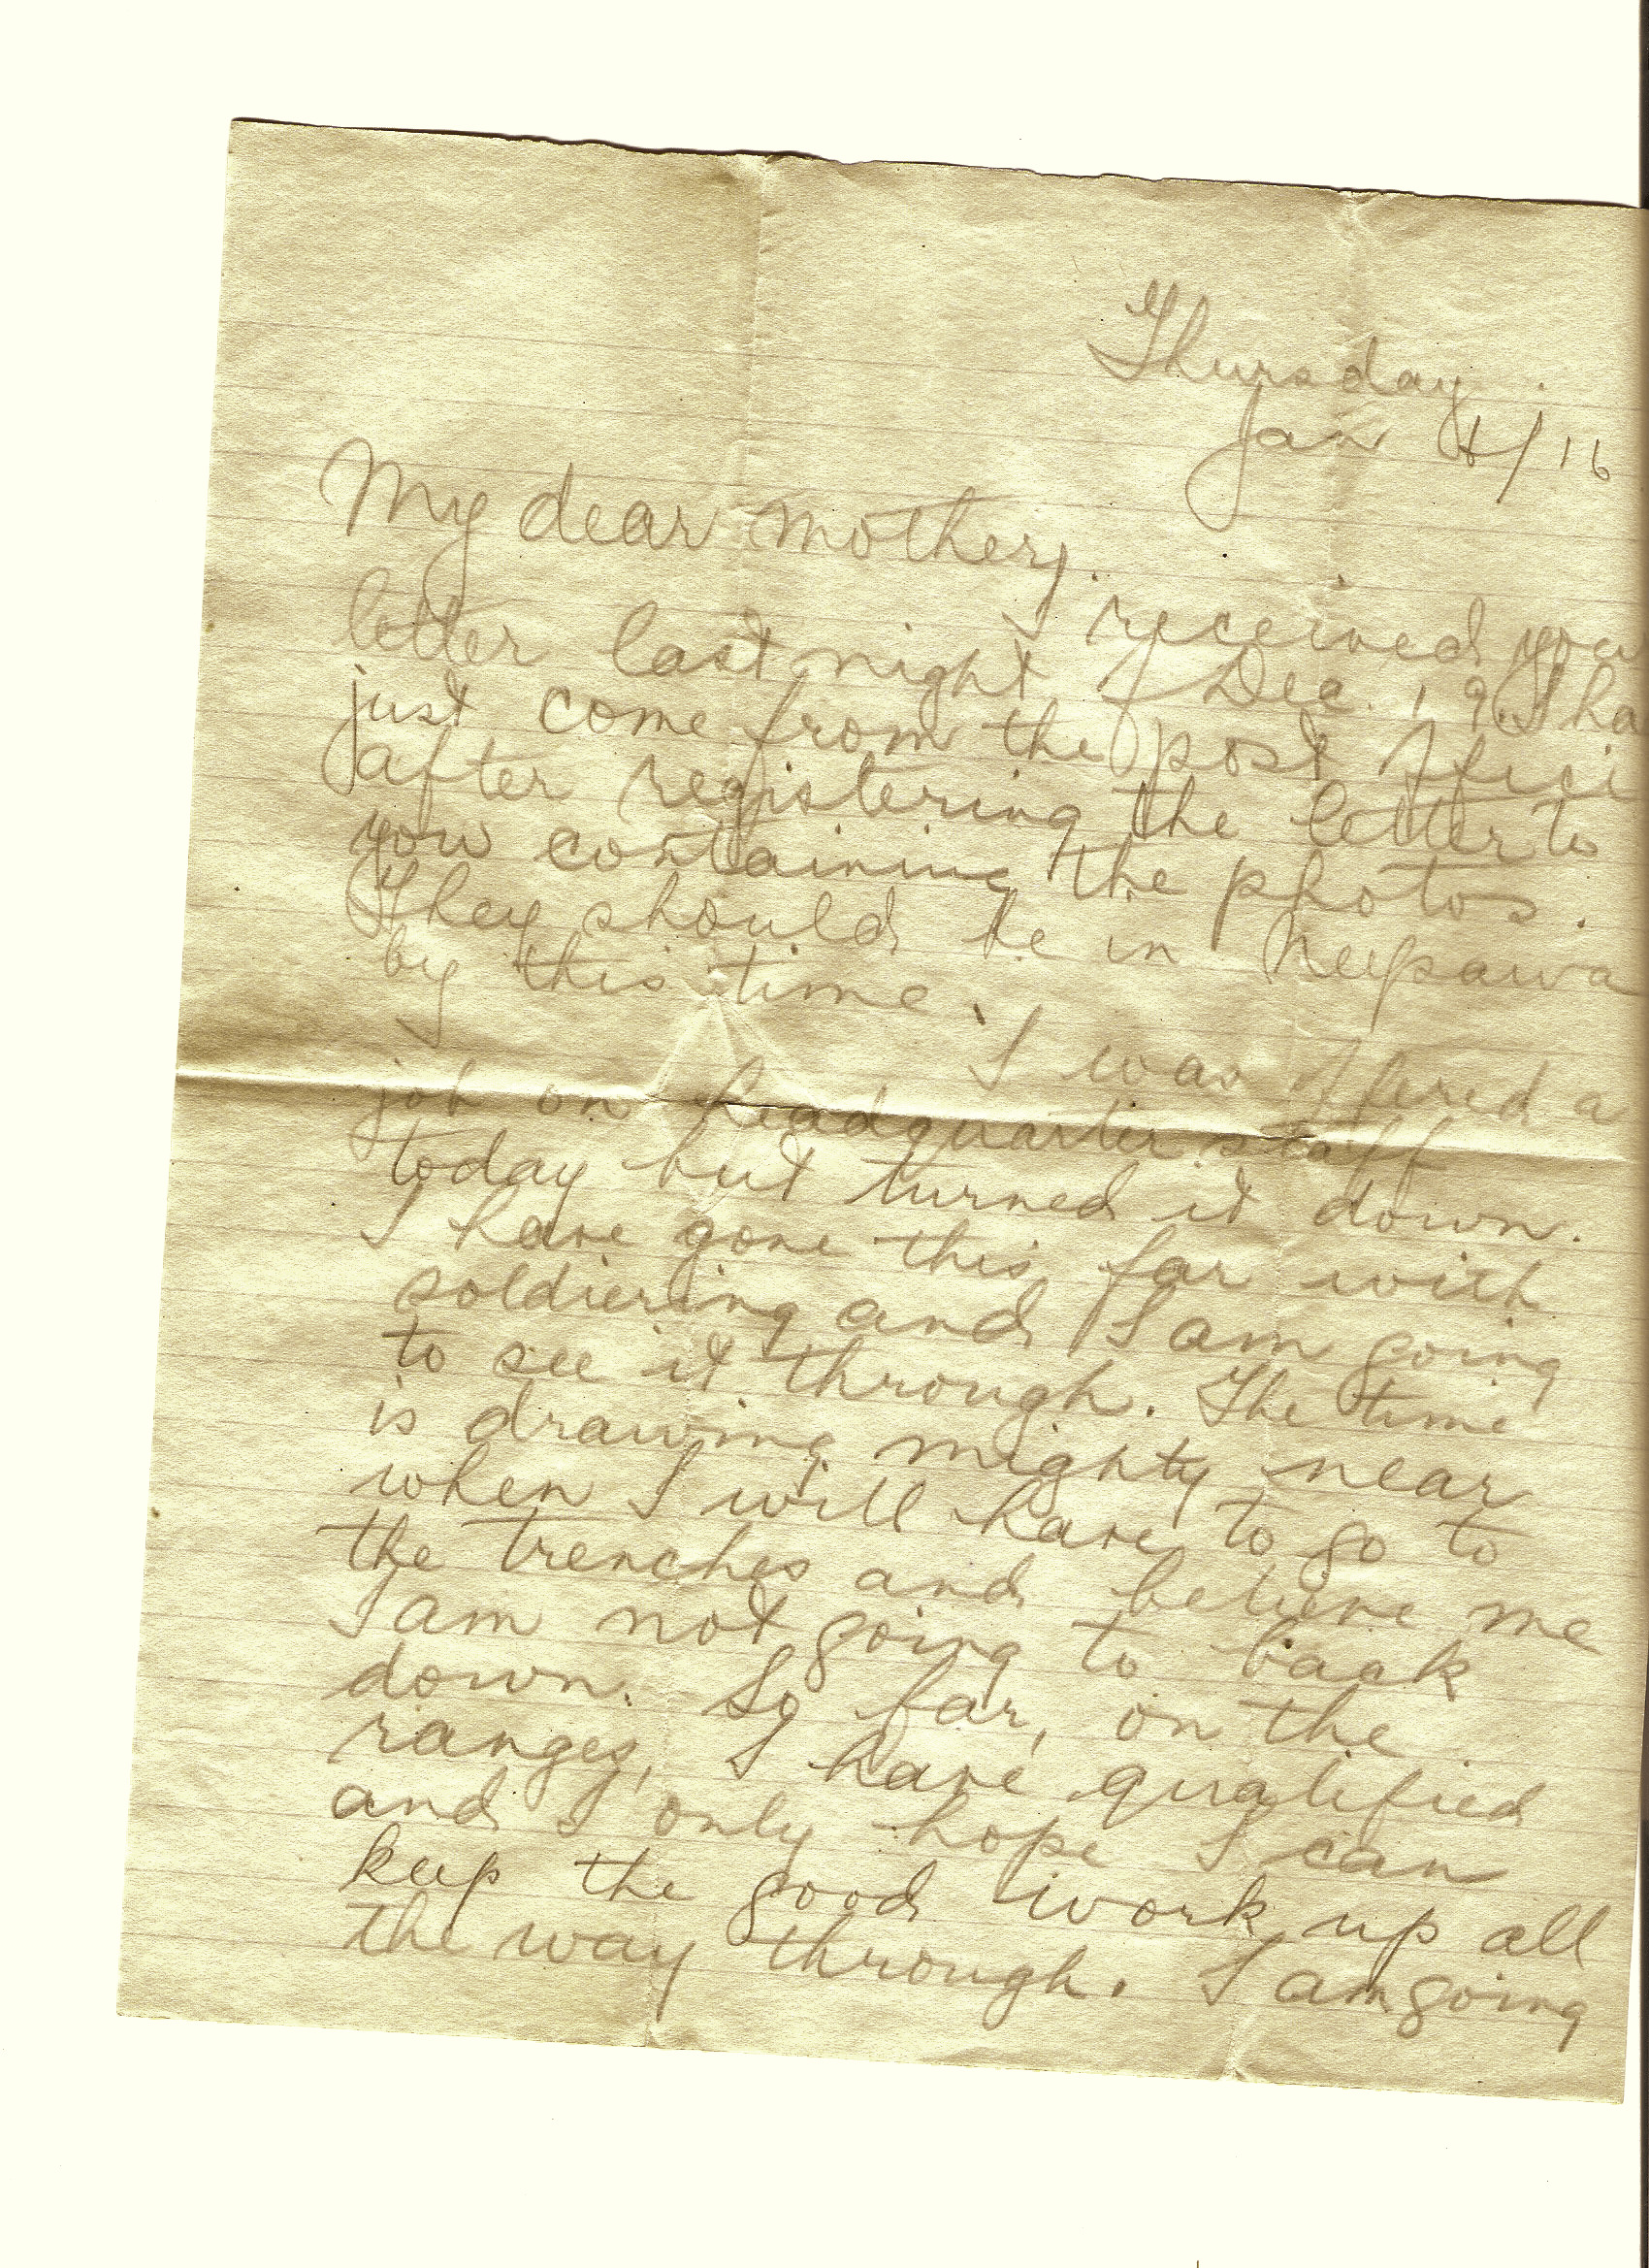 Thursday.
Jan 6/16
My dear mother,.
I received you
letter last night of Dec. 19. I ha
just come from the post offic
after registering the letter to
you containing the photos.
They should be in Neepawa
by this time.
I was offered a
job on headquarter staff
today but turned it down.
I have gone this far with
soldiering and I am going
to see it through. The time
is drawing mighty near
when I will have to go to
the trenches and believe me
I am not going to back
down. So far, on the
ranges, I have qualified
and I only hope I can
keep the good work up all
the way through. I am going